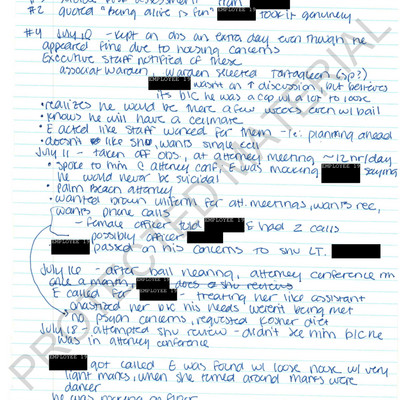 #2 quoted "Being alive is fun" EMPLOYEE 19 took it genuinely
#4 July 10 - kept on obs an extra day even though he
appeared fine due to housing concerns
Executive staff notified of these
associate warden, warden selected Tartaglione (sp?)
EMPLOYEE 19 wasn't in ↑ discussion, but believes
it's b/c he was a cop w/ a lot to lose
• realizes he would be there a few weeks even w/ bail
• knows he will have a cellmate
• E acted like staff worked for them - ie: planning ahead
• doesn't like shu, wants single cell
July 11 - taken off obs, at attorney meeting, ~12 hr/day
• spoke to him @ attorney conf, E was mocking EMPLOYEE 19 saying
he would never be suicidal
• Palm Beach attorney
• wanted brown uniform for att. meetings, wants rec,
wants phone calls
- female officer told EMPLOYEE 19 E had 2 calls
possibly officer
EMPLOYEE 19 passed on his concerns to shu LT.
July 16 - after bail hearing, attorney conference rm
once a month, EMPLOYEE 19 does shu reviews
E called for EMPLOYEE 19 - treating her like assistant
chastized her b/c his needs weren't being met
no psych concerns, requested kosher diet
July 18 - attempted shu review - didn't see him b/c he
was in attorney conference
EMPLOYEE 19 got called E was found w/ loose noose w/ very
light marks, when she turned around marks were
darker
he was
PROTECTED MATERIAL